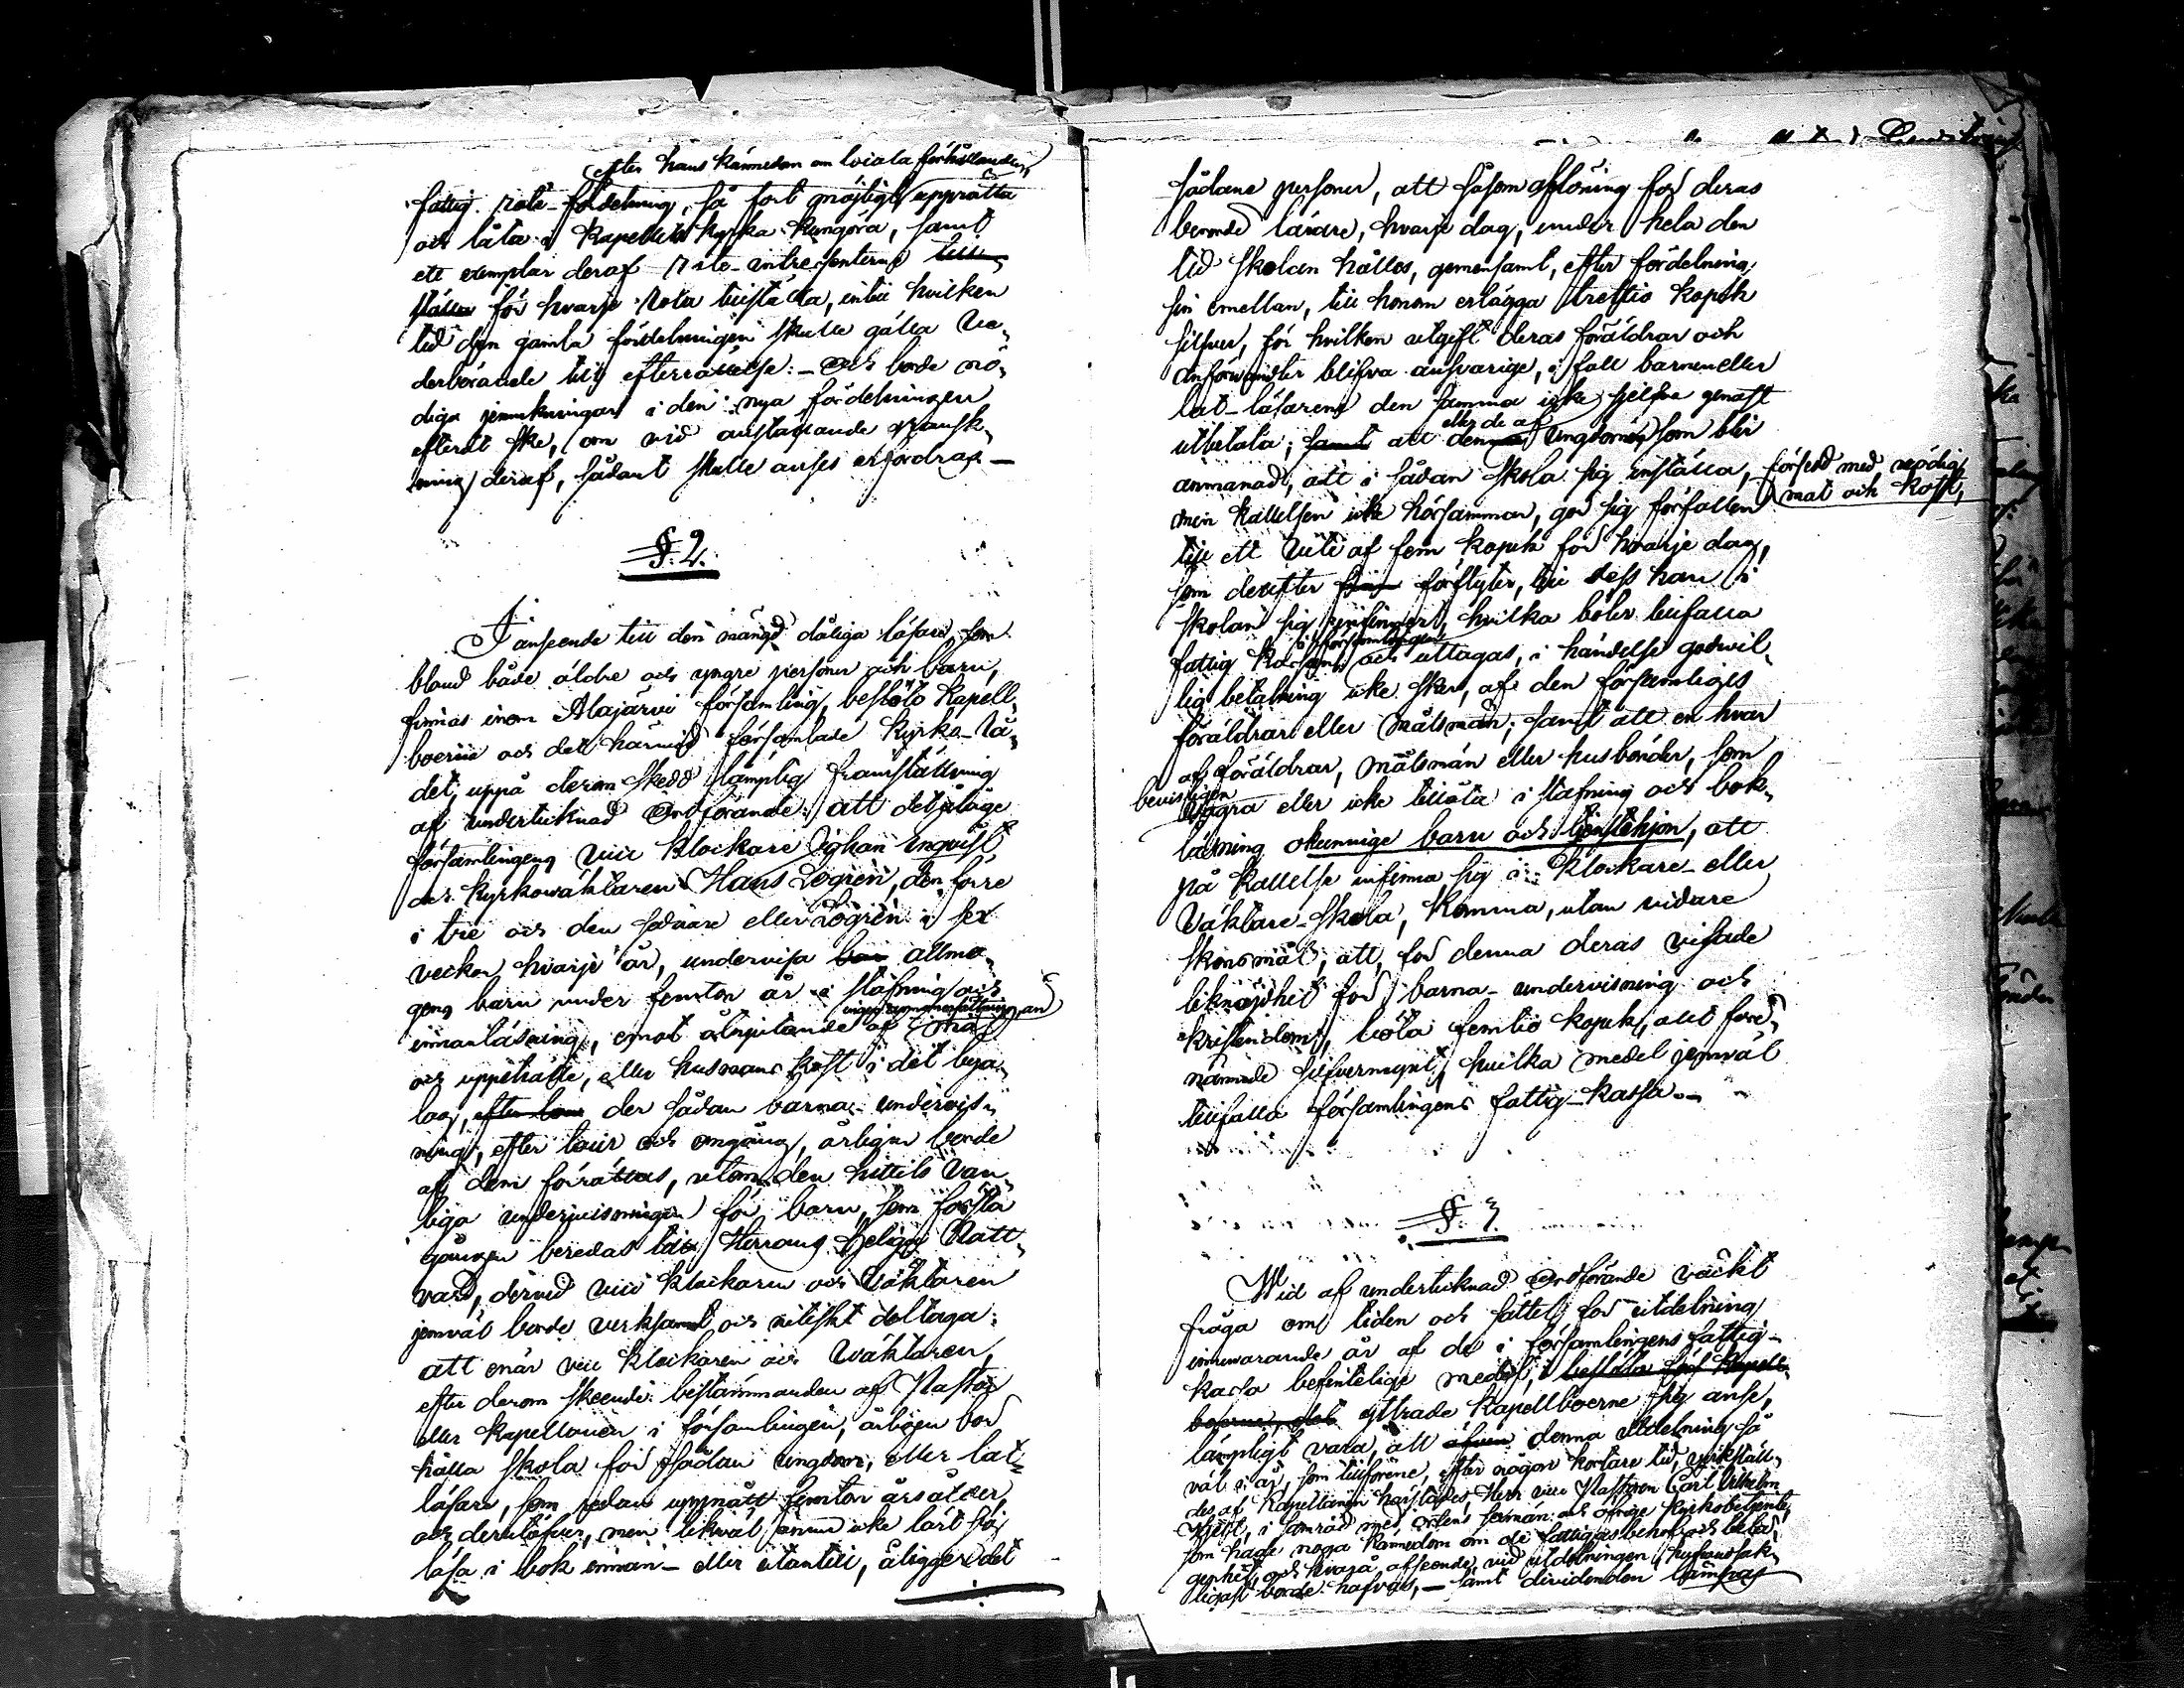 efter hans kännedom om locala förhållanden,
fattig-rote-fördelning, så fort möjligt upprätta
och låta i Kapellets kyrka kungöra, samt
ett exemplar deraf Rote-intressenterne till
ställa för hvarje Rota tillställa, intill hvilken
tid den gamla fördelningen skulle gälla ve-
derbörande till efterrättelse: – och borde nö-
diga jemkningar i den nya fördelningen
efteråt ske, om vid anställande gransk-
ning deraf, sådant skulle anses erfordras –
§. 2.
I anseende till den mängd dåliga läsare, som
bland både äldre och yngre personer och barn,
finnas inom Alajärvi församling, beslöto Kapell-
boerne och det härmed församlade Kyrko-Rå-
det, uppå derom skedd lämplig framställning
af undertecknad Ordförande: att det ålåge
församlingens vice Klockare Inqvist
och Kyrkowäktaren Hans Logrén, den förre
i tre och den sednare eller Logrén i sex
veckor hvarje år, undervisa bar allmo-
gens barn under femton år i stafning och
innanläsning, emot åtnjutande af mat
och uppehälle, eller husmans kost i det bya-
lag, efter der sådan barna-undervis-
ning, efter tour och omgång, årligen borde
af dem förrättas, utom den hittils van-
liga undervisningen för barn, som första
gången beredas till Herrans Heliga Natt-
vard, dervid vice Klockaren och Väktaren
jemväl borde verksamt och nitiskt deltaga:
att enär vice Klockaren och Wäktaren,
efter derom skeende bestämmanden af Pastor
eller Kapellanen i församlingen, årligen bör
hålla skola för sådan ungdom, eller lat-
läsare, som redan uppnått femton års ålder
och derutöfver, men likväl ännu icke lärt sig
läsa i bok innan- eller utantill, åligger det
sådane personer, att såsom aflöning för deras
berörde lärare, hvarje dag, under hela den
tid skolan hålles, gemensamt, efter fördelning
sin emellan, till honom erlägga trettio kopek
silfver, för hvilken utgift deras föräldrar och
anförvandter blifva ansvarige, i fall barnen eller
lat-läsarene den samma icke sjelfva genast
utbetala; samt att den eller de af Ungdomen, som blir
anmanad, att i sådan skola sig inställa, försedd med nödig
mat och kost,
men kallelsen icke hörsammar, gör sig förfallen
till ett vite af fem kopek för hvarje dag,
som derefter förflyter, till dess han i
skolan sig infinner, hvilka böter tillfalla
i församlingen
fattig Kassan och uttagas, i händelse godvil-
lig betalning icke sker, af den försumliges
föräldrar eller målsmän; samt att en hvar
af föräldrar, målsmän eller husbönder, som
bevisligen
vägra eller icke tillåta i stafning och bok-
läsning okunnige barn och tjenstehjon, att
på kallelse infinna sig i Klockare- eller
Väktare-skola, komma, utan vidare
skonsmål, att, för denna deras visade
liknöjdhet för barna-undervisning och
kristendom, böta femtio kopek, allt före-
nämnde silfvermynt, hvilka medel jemväl
tillfalla församlingens fattig-kassa. –
§. 3
Wid af undertecknad Ordförande väckt
fråga om tiden och sättet för utdelning
innevarande år af de i församlingens fattig-
kassa befintelige medel, beslöto Kapell-
boerne, yttrade Kapellboerne sig anse,
lämpligt vara, att äfven denna utdelning så
väl i år, som tillförene, efter någon kortare tid, verkställ-
des af Kapellanen härstädes, Herr vice Pastoren Carl Wilhelm
i samråd med ortens sexmän och öfrige Kyrkobetjente,
som hade noga kännedom om de fattigas behof och belä-
genhet, och hvarå afseende vid utdelningen hufvudsak-
ligast borde hafvas, – samt dividenden lämpas